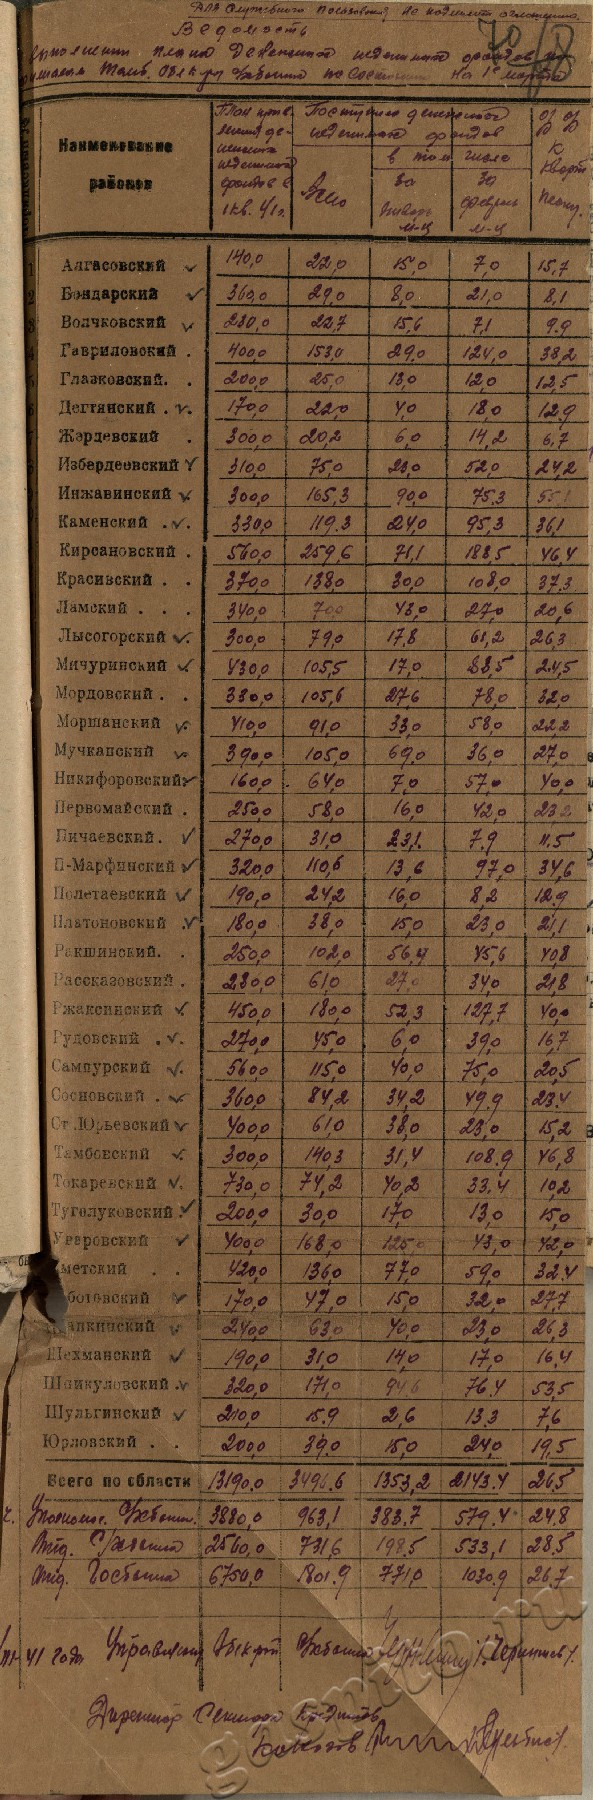 Для служебного пользования не подлежит оглашению.
Ведомость
выполнения плана денежных неделимых фондов по
Тамб. на 1е марта
70
Наименование районов | План 1 кв. 41г. | Поступило денежных неделимых фондов
Всего | в том числе | за январь м-ц | за февраль м-ц | % % к кварт. плану
1 Алгасовский 140,0 22,0 15,0 7,0 15,7
2 Бондарский 360,0 29,0 8,0 21,0 8,1
3 Волчковский 230,0 22,7 15,6 7,1 9.9
4 Гавриловский 400,0 153,0 29,0 124,0 38,2
Глазковский 200,0 25,0 13,0 12,0 12,5
Дегтянский 170,0 22,0 4,0 18,0 12,9
Жердевский 300,0 20,2 6,0 14,2 6,7
Избердеевский 310,0 75,0 23,0 52,0 24,2
Инжавинский 300,0 165,3 90,0 75,3 55,1
Каменский 330,0 119.3 24,0 95,3 36,1
Кирсановский 560,0 259,6 71,1 188,5 46,4
Красивский 370,0 138,0 30,0 108,0 37,3
Ламский 340,0 70,0 43,0 27,0 20,6
Лысогорский 300,0 79,0 17,8 61,2 26,3
Мичуринский 430,0 105,5 17,0 88,5 24,5
Мордовский 330,0 105,6 27,6 78,0 32,0
Моршанский 410,0 91,0 33,0 58,0 22,2
Мучкапский 390,0 105,0 69,0 36,0 27,0
Никифоровский 160,0 64,0 7,0 57,0 40,0
Первомайский 250,0 58,0 16,0 42,0 23,2
Пичаевский 270,0 31,0 23,1 7.9 11.5
П-Марфинский 320,0 110,6 13,6 97,0 34,6
Полетаевский 190,0 24,2 16,0 8,2 12.9
Платоновский 180,0 38,0 15,0 23,0 21,1
Ракшинский 250,0 102,0 56,4 45,6 40,8
Рассказовский 280,0 61,0 27,0 34,0 21,8
Ржаксинский 450,0 180,0 52,3 127,7 40,0
Рудовский 270,0 45,0 6,0 39,0 16,7
Сампурский 560,0 115,0 40,0 75,0 20,5
Сосновский 360,0 84,2 34,2 49.9 23.4
Ст.Юрьевский 400,0 61,0 38,0 23,0 15,2
Тамбовский 300,0 140,3 31,4 108.9 46,8
Токаревский 730,0 74,2 40,2 33.4 10,2
Туголуковский 200,0 30,0 17,0 13,0 15,0
Уваровский 400,0 168,0 125,0 43,0 42,0
метский 420,0 136,0 77,0 59,0 32.4
ботовский 170,0 47,0 15,0 32,0 27,7
апкинский 240,0 63,0 40,0 23,0 26,3
Шехманский 190,0 31,0 14,0 17,0 16,4
Шпикуловский 320,0 171,0 94,6 76.4 53,5
Шульгинский 210,0 15.9 2,6 13.3 7,6
Юрловский 200,0 39,0 15,0 24,0 19,5
Всего по области 13190,0 3496.6 1353,2 2143.4 26,5
Уполномоч. Сельхозбанка 3880,0 963,1 383.7 579.4 24.8
Отд. С/хозбанка 2560,0 731,6 198,5 533,1 28,5
Отд. Госбанка 6750,0 1801.9 771,0 1030,9 26,7
41 года Управляющий Облконт. Сельхозбанка
Директор
gasnito.ru